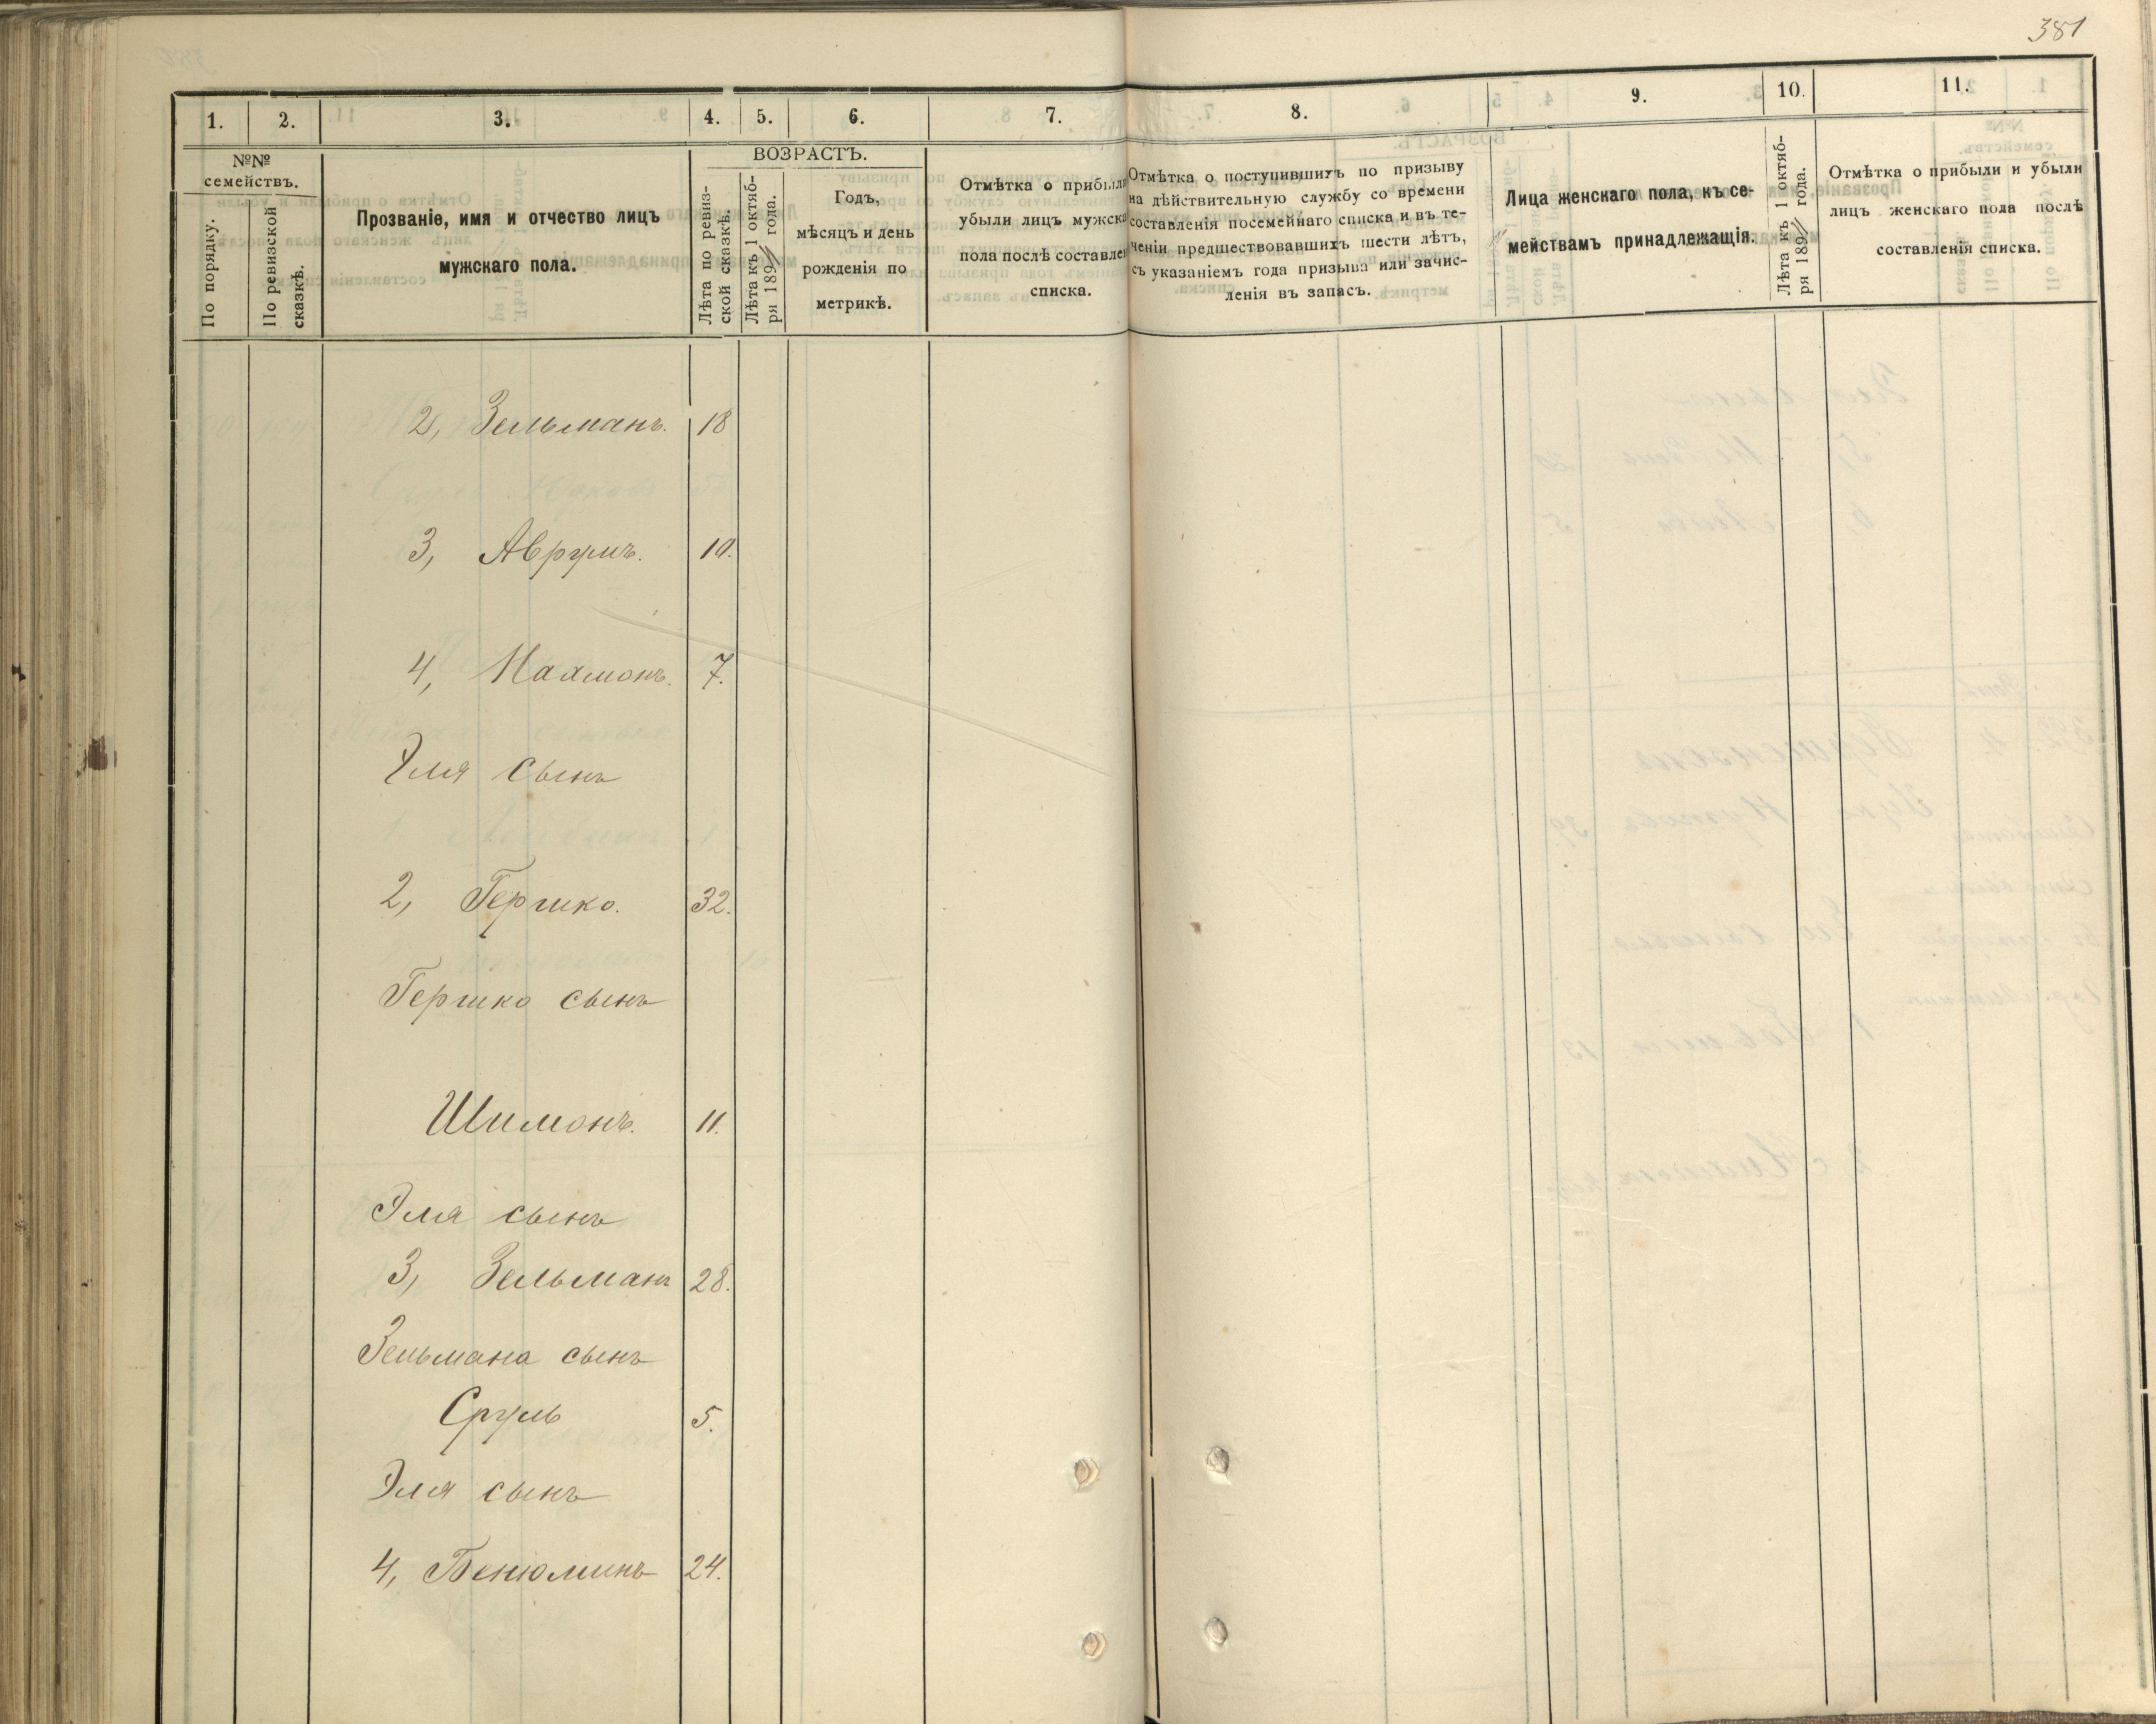 381
1. 2. 3. 4. 5. 6. 7. 8. 9. 10. 11.
№№
семействъ.
По порядку.
По ревизской
сказкѣ.
Прозваніе, имя и отчество лицъ
мужскаго пола.
ВОЗРАСТЪ.
Лѣта по ревиз-
ской сказкѣ.
Лѣта къ 1 октяб-
ря 189 года.
Годъ,
мѣсяцъ и день
рожденія по
метрикѣ.
Отмѣтка о прибыли
убыли лицъ мужска
пола послѣ составле
списка.
Отмѣтка о поступившихъ по призыву
на дѣйствительную службу со времени
составленія посемейнаго списка и въ те-
ченіи предшествовавшихъ шести лѣтъ,
съ указаніемъ года призыва или зачис-
ленія въ запасъ.
Лица женскаго пола, къ се-
мействамъ принадлежащія.
Лѣта къ 1 октяб-
ря 189 года.
Отмѣтка о прибыли и убыли
лицъ женскаго пола послѣ
составленія списка.
2, Зельманъ. 18
3, Аврумъ. 10.
4, Нахмонъ. 7.
Эля сынъ
2, Гершко. 32.
Гершко сынъ
Шимонъ. 11.
Эля сынъ
3, Зельманъ 28.
Зельмана сынъ
Сруль 5.
Эля сынъ
4, Бенюминъ 24.